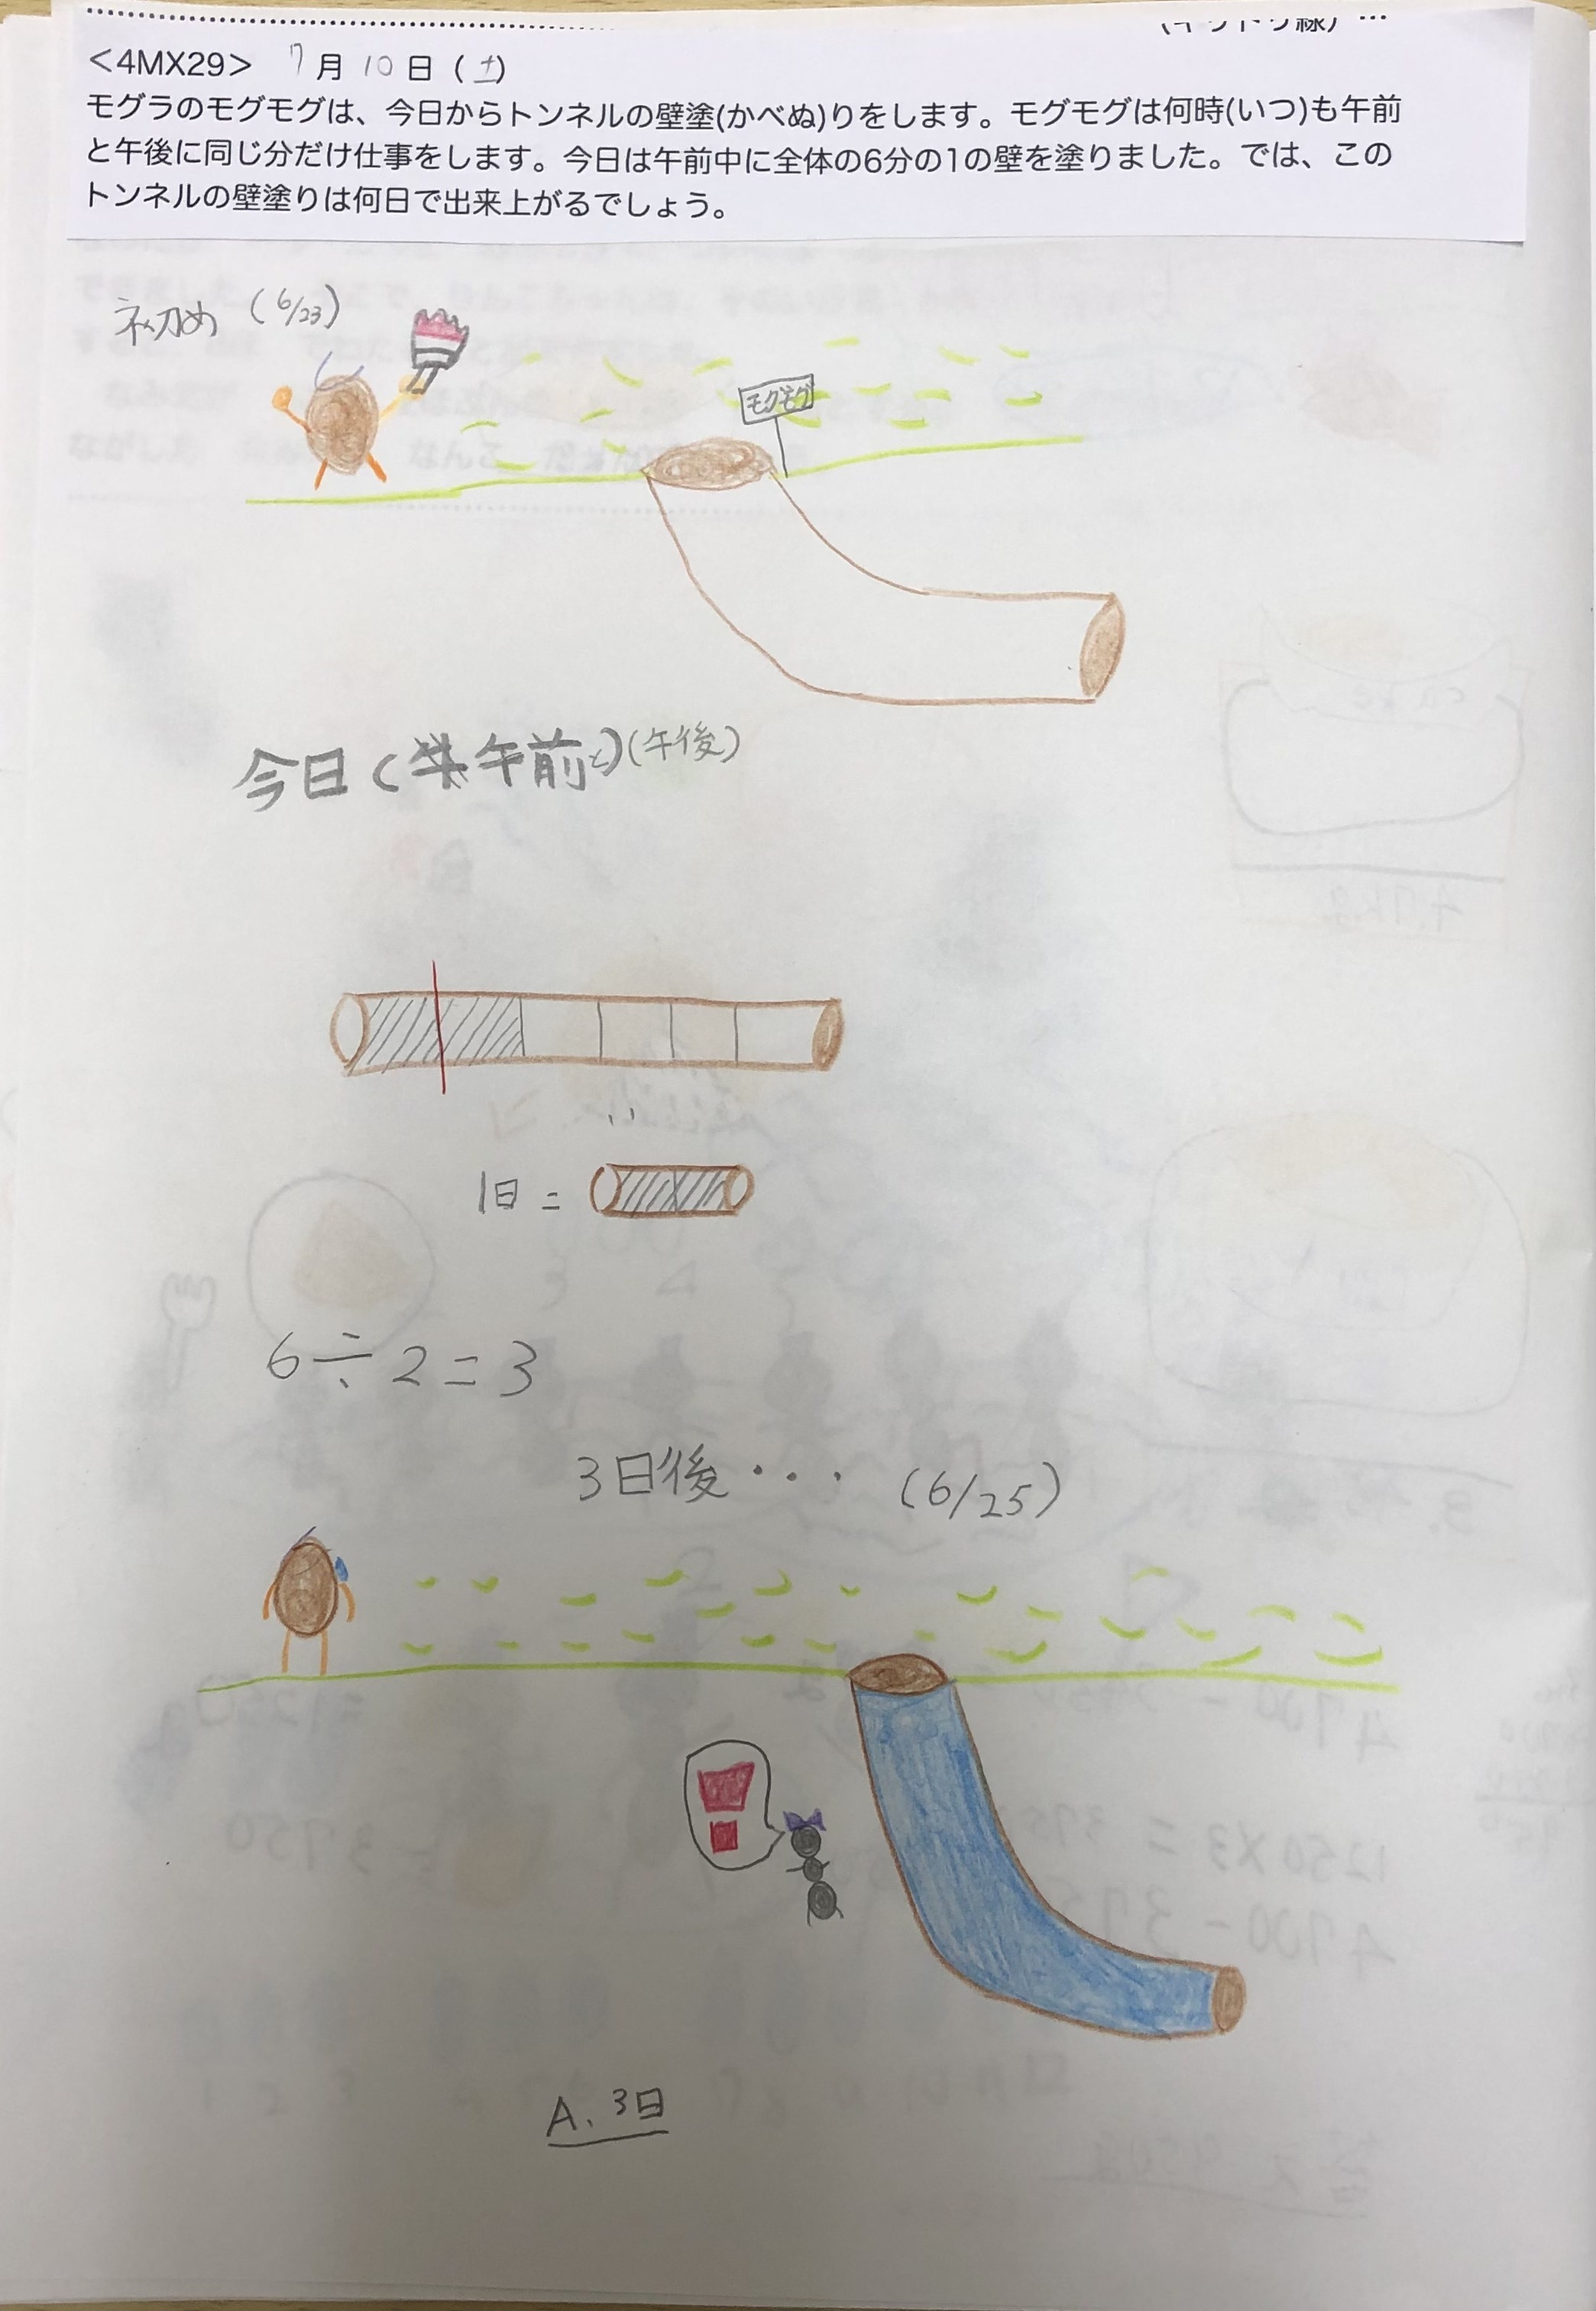 <4MX29> 7月10日(土)
モグラのモグモグは、今日からトンネルの壁塗(かべぬ)りをします。モグモグは何時(いつ)も午前
と午後に同じ分だけ仕事をします。今日は午前中に全体の6分の1の壁を塗りました。では、この
トンネルの壁塗りは何日で出来上がるでしょう。
初め (6/23)
モグモグ
今日(午前と)(午後)
1日=
6÷2=3
3日後・・・ (6/25)
!
A、3日